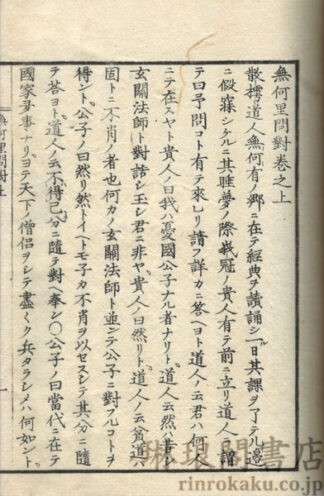 無何里問對卷之上
散樗道人無何有ノ鄕ニ在テ經典ヲ讀誦シ一日其課ヲ了テル邊
ニ假寐シケルニ其睡夢ノ際峩冠ノ貴人有テ前ニ立リ道人ニ謂
テ曰予問コト有テ來レリ請フ詳カニ答ヘヨト道人ノ云君ハ何
ニテ在スヤト貴人ノ曰我ハ憂國公子ナル者ナリト道人ノ云然ハ書シ
玄關法師ト對話シ玉シ君ニ非ヤ貴人ノ曰然リト道人ノ云貧道ハ
固トニ不肖ノ者也何カ玄關法師ト並シテ公子ニ對フルコトヲ
得ント公子ノ曰然リ然トイヘトモ子カ不肖ヲ以セスシテ其分ニ隨
テ答ヨト道人ノ云不得已分ニ隨テ對ヘ奉シ〇公子ノ曰當代ニ在テ
國家多事ナリヨテ天下ノ僧侶ヲシテ盡ク兵タラシメハ何如ント
無何里問對上
一
琳琅閣書店
rinrokaku.co.jp